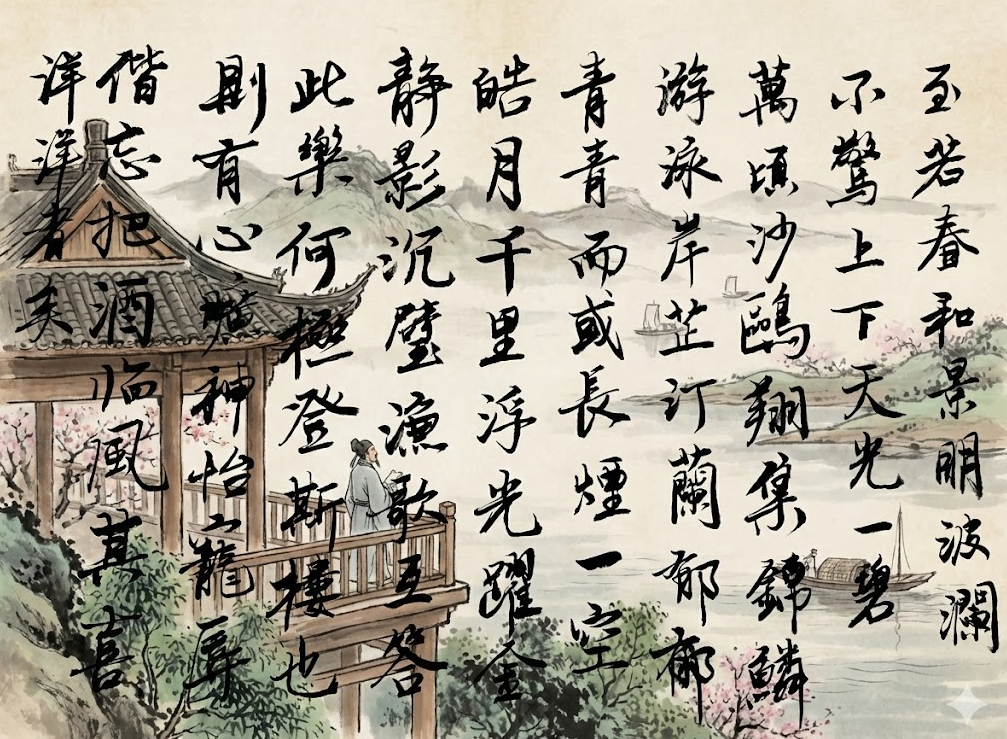 至若春和景明波瀾
不驚上下天光一碧
萬頃沙鷗翔集錦鱗
游泳岸芷汀蘭郁郁
青青而或長煙一空
皓月千里浮光躍金
静影沉璧漁歌互答
此樂何極登斯樓也
則有心曠神怡寵辱
偕忘把酒临風其喜
洋洋者矣